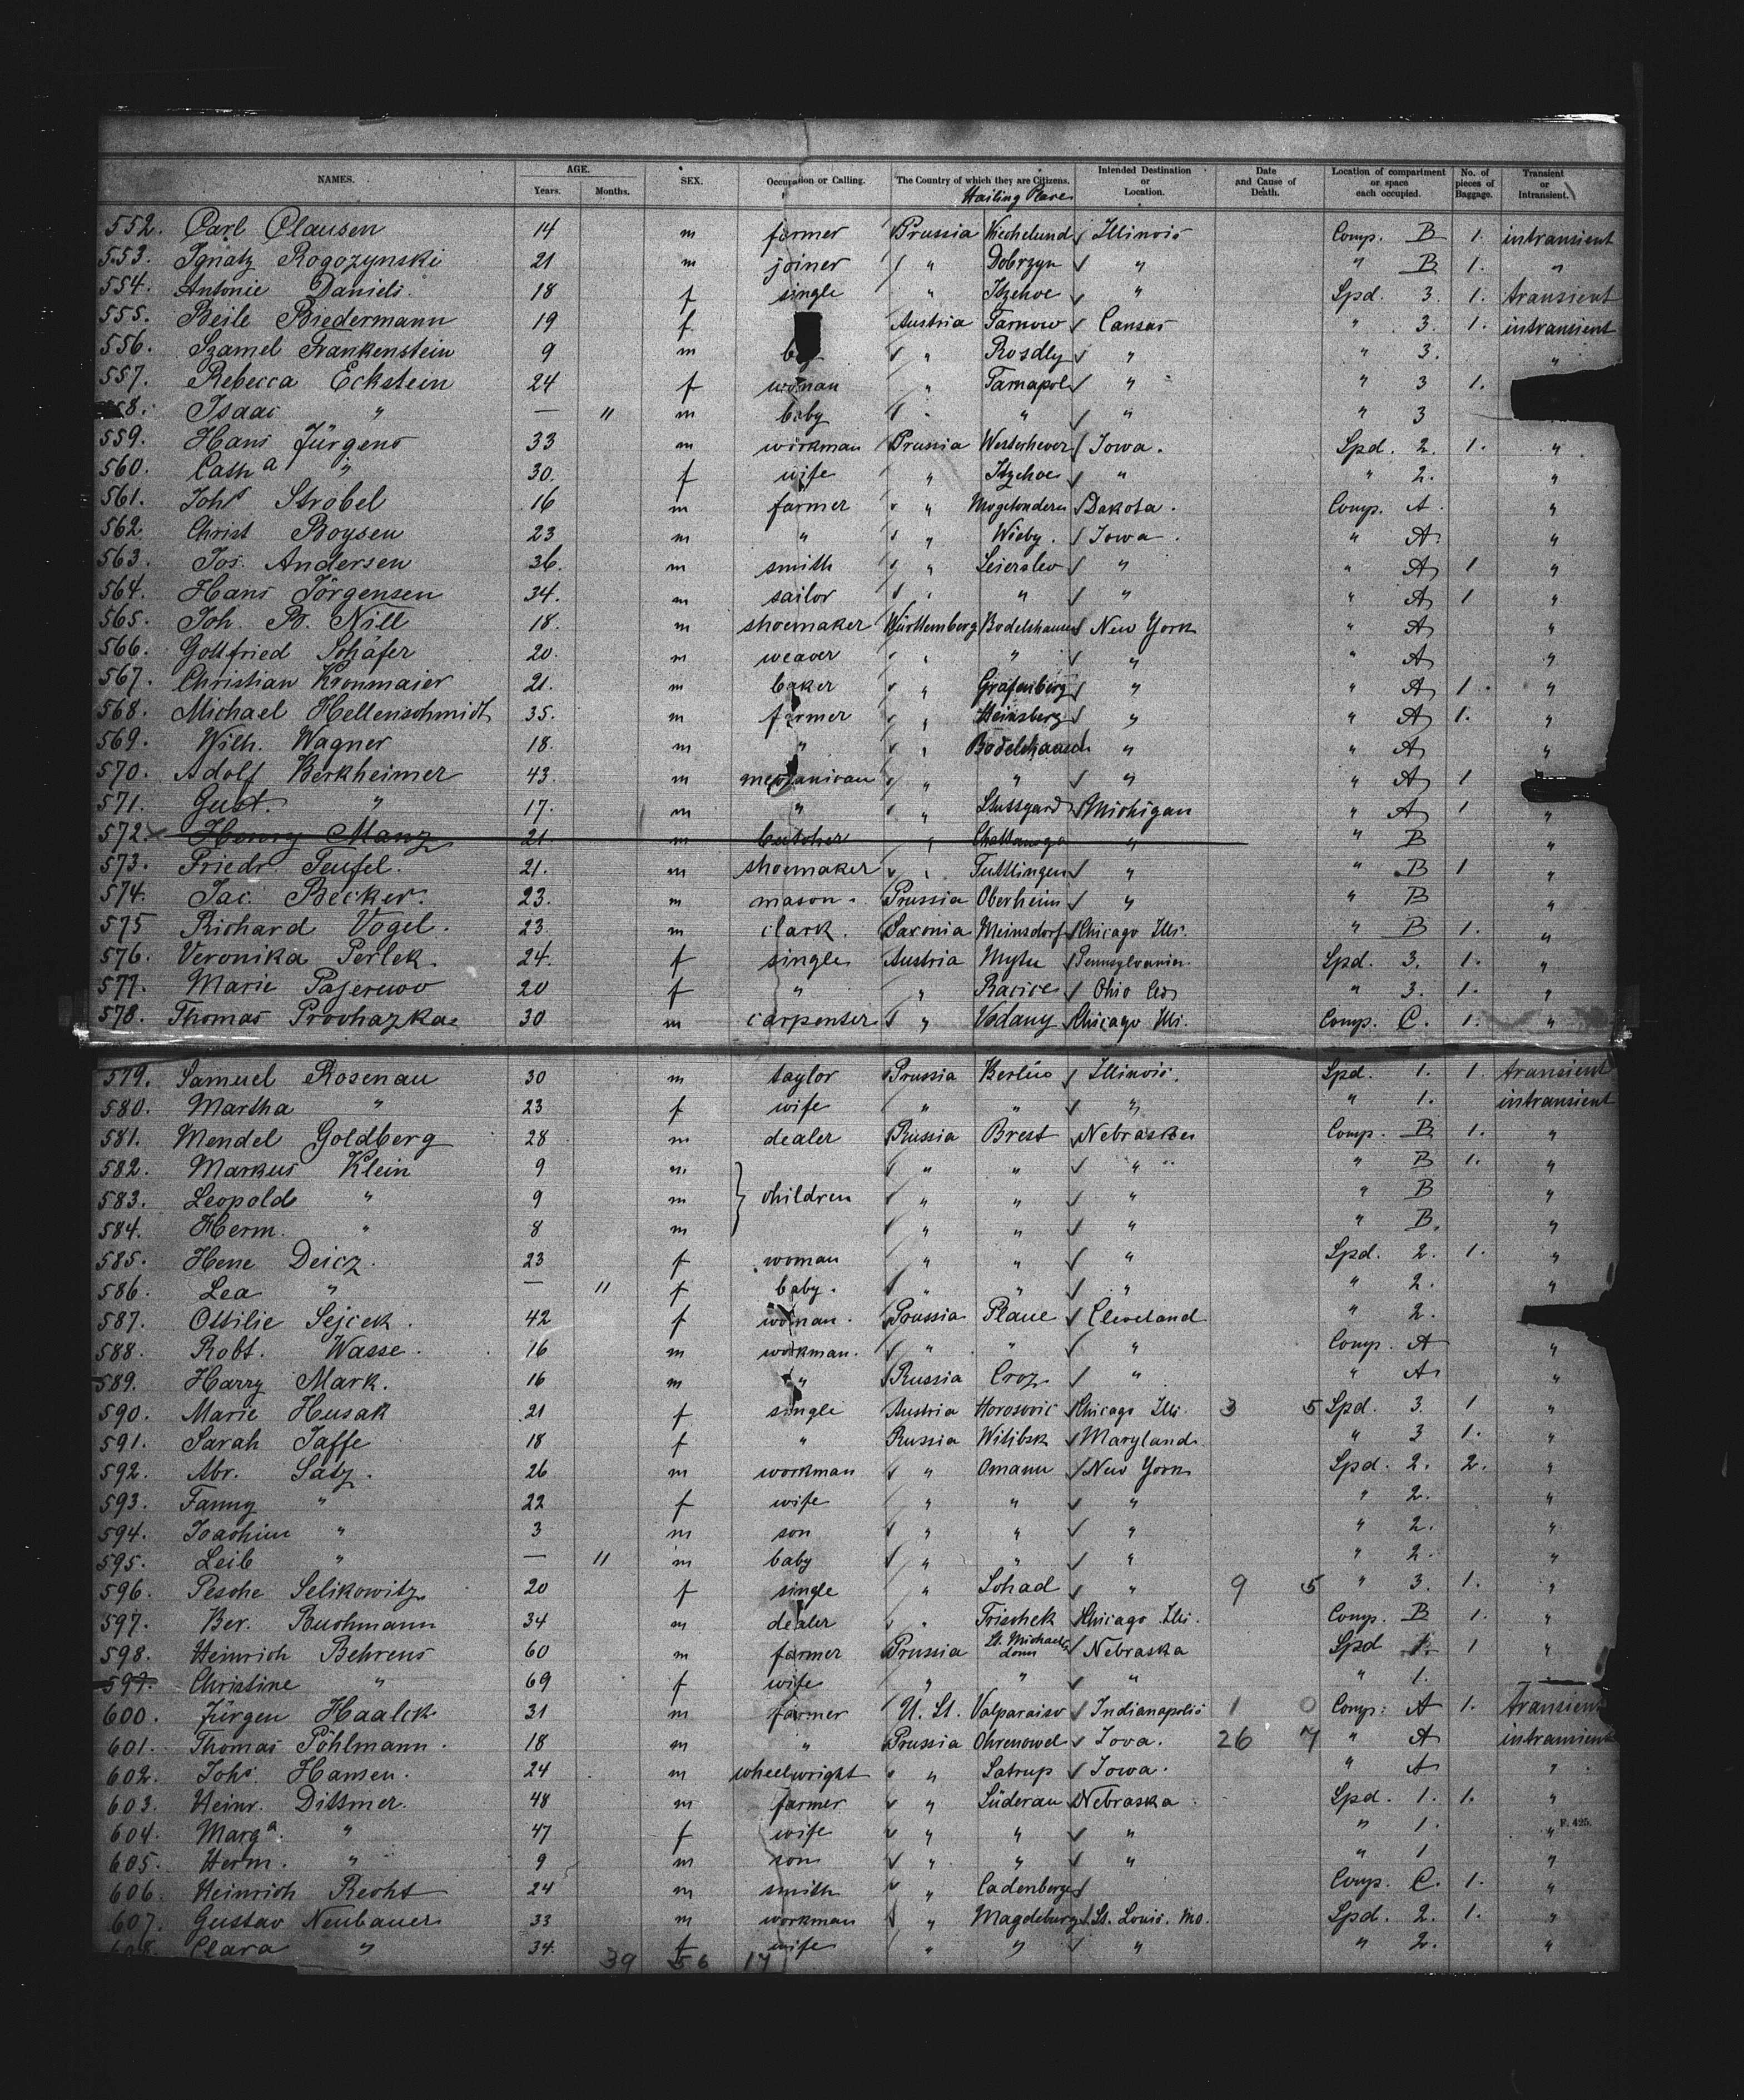 NAMES. AGE. Years. Months. SEX. Occupation or Calling. The Country of which they are Citizens. Hailing Place Intended Destination or Location. Date and Cause of Death. Location of compartment or space each occupied. No. of pieces of Baggage. Transient or Intransient.
552. Carl Clausen 14 m farmer Prussia Illinois Comp. B 1. intransient
553. Ignatz Rogozynski 21 m joiner " Dobrzyn " " B 1. "
554. Antonie Daniels 18 f single " Itzehoe " Spd. 3. 1. transient
555. Beile Biedermann 19 f Austria Tarnow Cansas " 3. 1. intransient
556. Szamel Frankenstein 9 m " Rosdly " " 3. "
557. Rebecca Eckstein 24 f woman " Tarnapol " " 3 1.
558. Isaac " — 11 m baby " " " " 3
559. Hans Jürgens 33 m workman Prussia Westerhever Iowa. Spd. 2. 1. "
560. Cath a " 30. f wife " Itzehoe " " 2. "
561. Johs Strobel 16 m farmer " Mogeltondern Dakota. Comp. A. "
562. Christ Boysen 23 m " " Wieby. Iowa. " A "
563. Jos. Andersen 36. m smith " Leierslev " " A 1 "
564. Hans Jörgensen 34. m sailor " " " " A 1 "
565. Joh. B. Nill 18. m shoemaker Württemberg Bodelshausen New York " A "
566. Gottfried Schäfer 20. m weaver " " " " A "
567. Christian Kronmaier 21. m baker " Grafenberg " " A 1. "
568. Michael Hellenschmidt 35. m farmer " Heinsberg " " A 1. "
569. Wilh. Wagner 18. m " " Bodelshausen " " A "
570. Adolf Berkheimer 43. m mechanican " " " " A 1
571. Gust. " 17. m " " Stuttgard Michigan " A 1 "
572. Henry Manz 21. m butcher " " " B "
573. Friedr. Teufel. 21. m shoemaker " Tuttlingen " " B 1 "
574. Jac. Becker. 23. m mason. Prussia Oberheim " " B "
575 Richard Vogel. 23. m clark. Saxonia Meinsdorf Chicago Ills. " B 1. "
576. Veronika Perlek 24. f single Austria Pennsylvanien Spd. 3. 1. "
577. Marie 20 f " " Racice Ohio " 3. 1. "
578. Thomas Provhazka 30 m carpenter " Vodany Chicago Ills. Comp. C. 1. "
579. Samuel Rosenau 30 m taylor Prussia Berlin Illinois. Spd. 1. 1. transient
580. Martha " 23 f wife " " " " 1. intransient
581. Mendel Goldberg 28 m dealer Russia Brest Nebraska Comp. B 1. "
582. Markus Klein 9 m " " " " B 1. "
583. Leopold " 9 m children " " " " B "
584. Herm. " 8 m " " " " B. "
585. Hene Deicz. 23 f woman " " " Spd. 2. 1. "
586. Lea " — 11 f baby. " " " " 2. "
587. Ottilie Sejcek. 42 f woman. Prussia Plaue Cleveland " 2.
588. Robt. Wasse. 16 m workman. " " " Comp. A "
589. Harry Mark. 16 m " Russia Croz. " " A "
590. Marie Husak 21 f single Austria Horosovic Chicago Ills. 3 5 Spd. 3. 1 "
591. Sarah Jaffe 18 f " Russia Witibsk Maryland. " 3 1. "
592. Abr. Satz. 26 m workman " Omann New York Spd. 2. 2. "
593. Fanny " 22 f wife " " " " 2. "
594. Joachim " 3 m son " " " " 2. "
595. Leib " — 11 m baby " " " " 2. "
596. Pesche Selikowitz 20 f single " Sohad " 9 5 " 3. 1. "
597. Ber. Buchmann 34 m dealer " Trischek Chicago Ills. Comp. B 1. "
598. Heinrich Behrens 60 m farmer Prussia St. Michaelisdonn Nebraska Spd 1. 1 "
599. Christine " 69 f wife " " " " 1.
600. Jürgen Haalck 31 m farmer U. St. Valparaiso Indianapolis 1 0 Comp: A 1. transient
601. Thomas Pöhlmann. 18 m " Prussia Iova. 26 7 " A intransient
602. Johs. Hansen. 24 m wheelwright " Satrup Iowa. " A "
603. Heinr. Dittmer. 48 m farmer " Süderau Nebraska Spd. 1. 1. "
604. Marga. " 47 f wife " " " " 1. " F. 425.
605. Herm. " 9 m son " " " " 1 "
606. Heinrich Recht 24 m smith " Cadenberge Comp. C. 1. "
607. Gustav Neubauer 33 m workman " Magdeburg St. Louis. Mo. Spd. 2. 1. "
608. Clara " 34. f wife " " " " 2. "
39 56 17